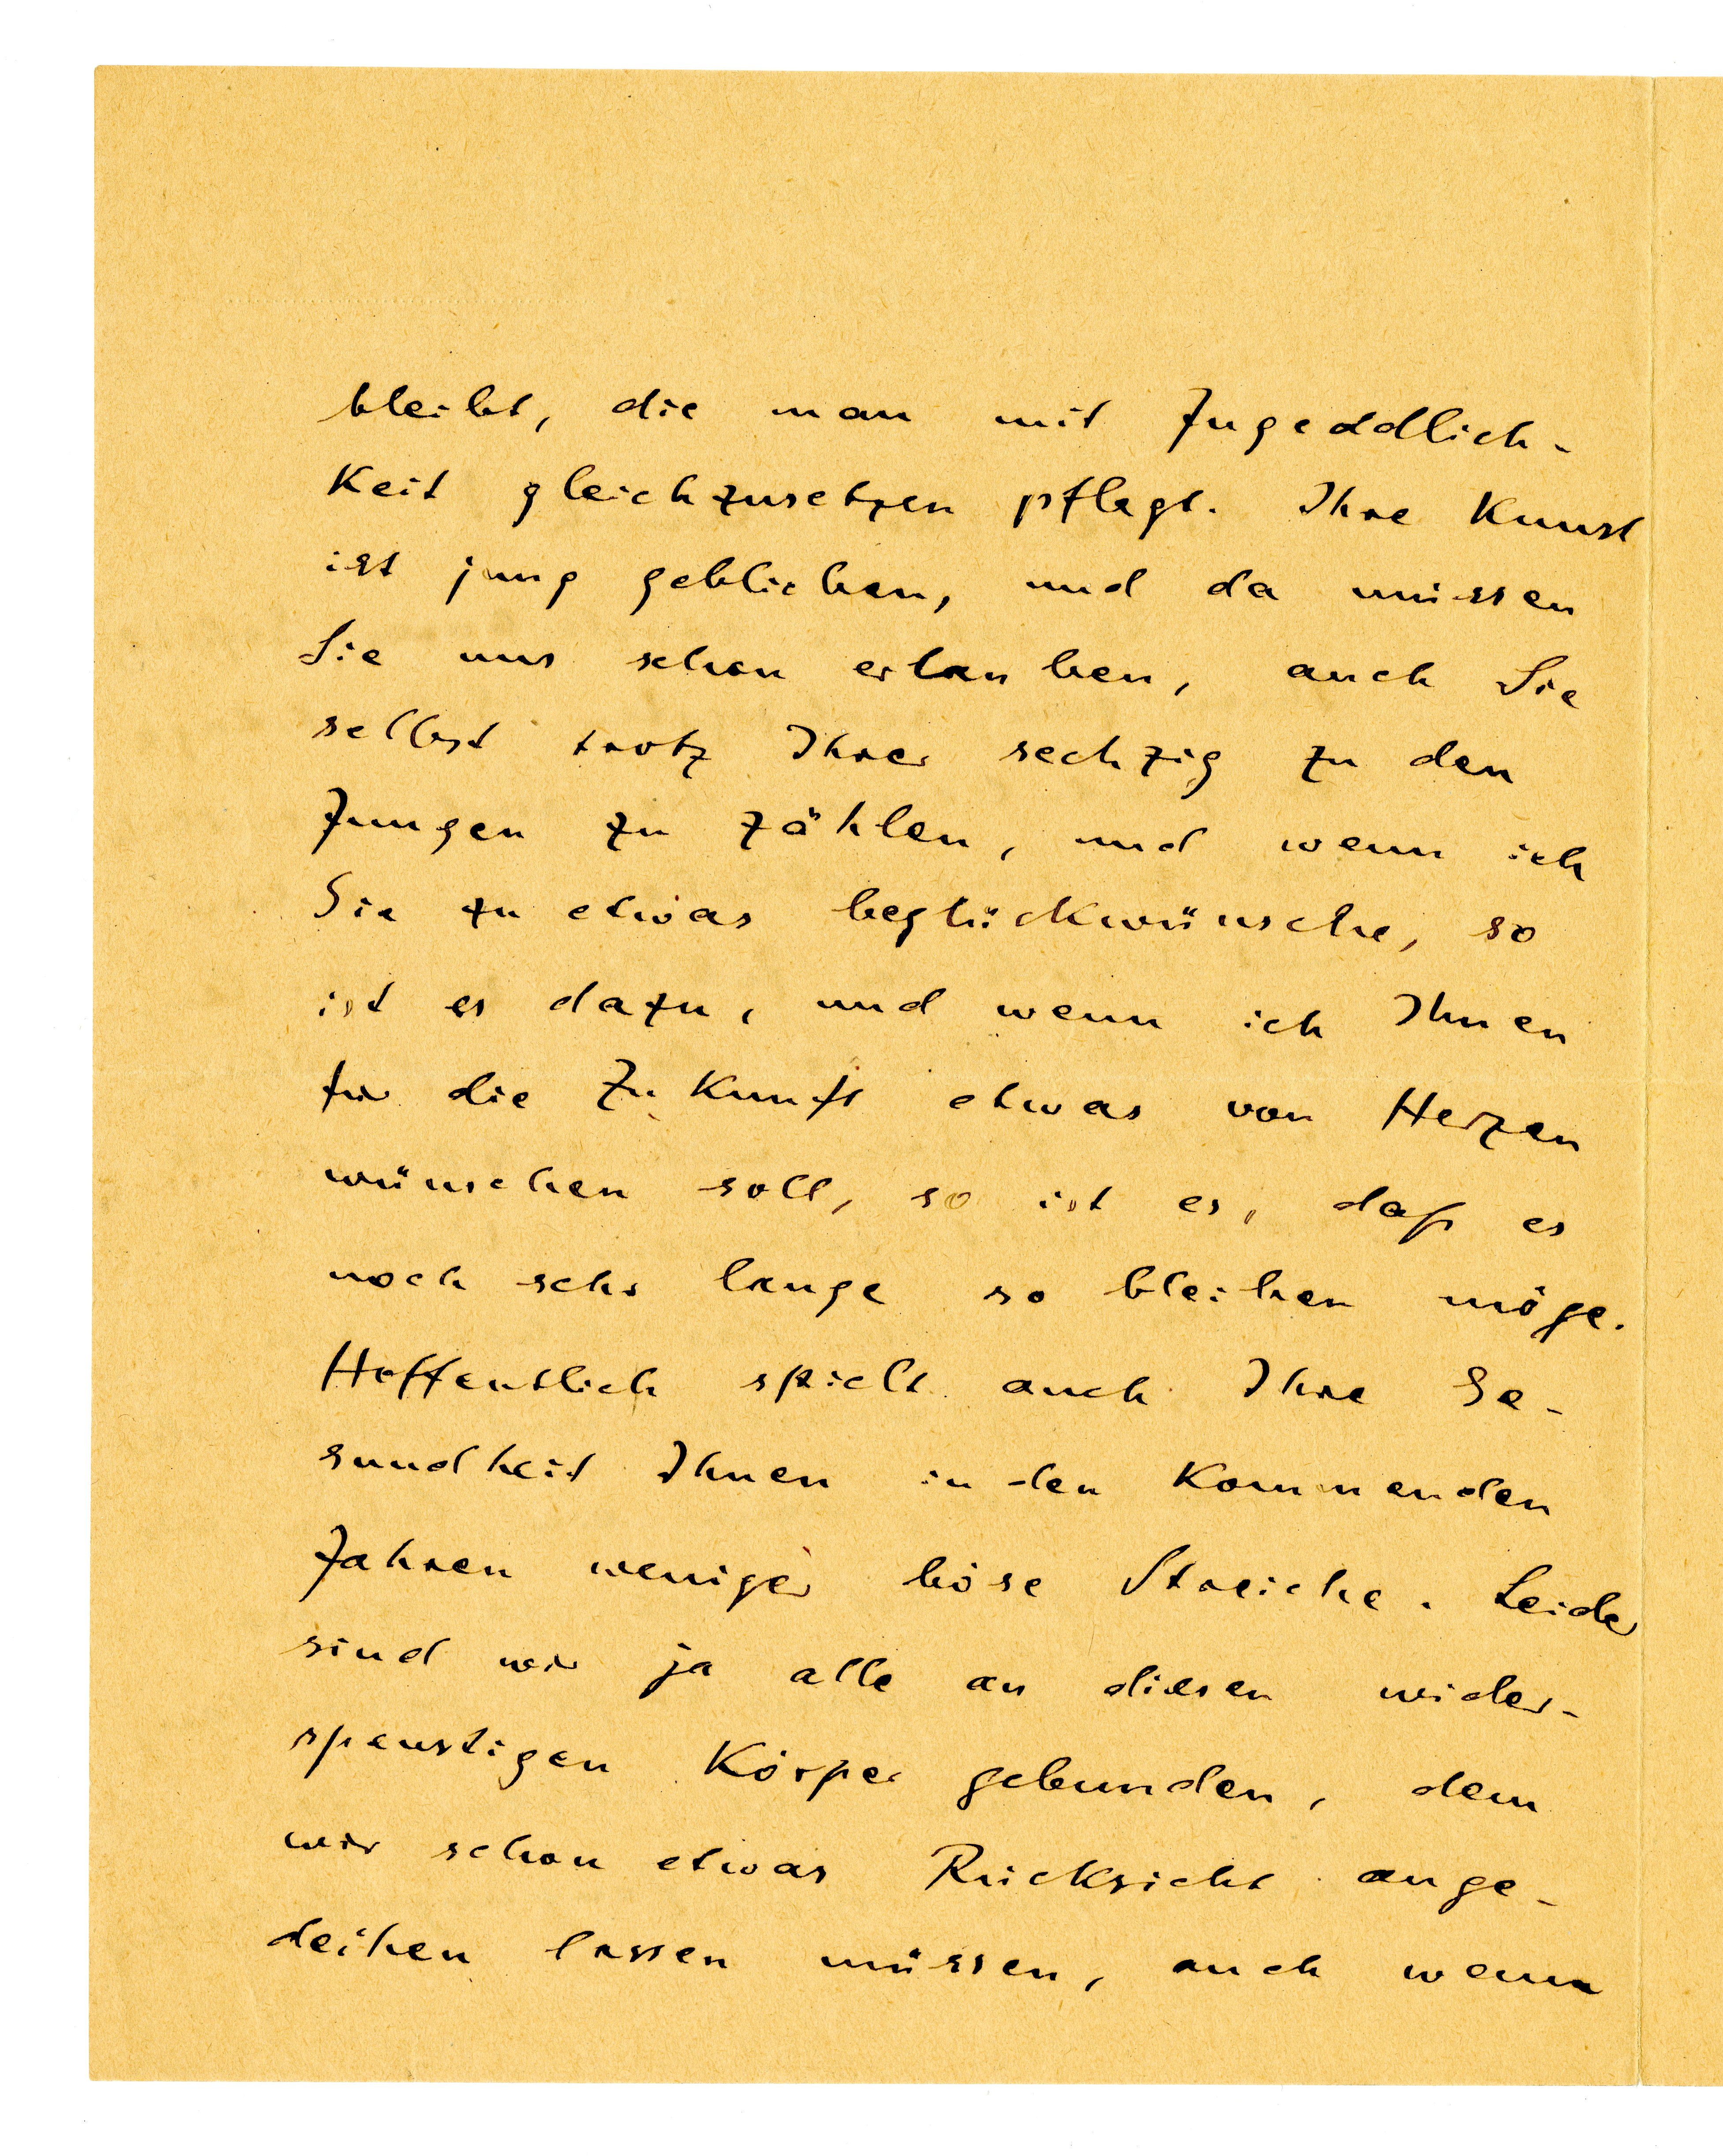 bleibt, die man mit Jugeddlich-
keit gleichzusetzen pflegt. Ihre Kunst
ist jung geblieben, und da müssen
Sie uns schon erlauben, auch Sie
selbst trotz Ihrer sechzig zu den
Jungen zu zählen, und wenn ich
Sie zu etwas beglückwünsche, so
ist es dazu, und wenn ich Ihnen
für die Zukunft etwas von Herzen
wünschen soll, so ist es, daß es
noch sehr lange so bleiben möge.
Hoffentlich spielt auch Ihre Ge-
sundheit Ihnen in den kommenden
Jahren weniger böse Streiche. Leider
sind wir ja alle an diesen wider-
spenstigen Körper gebunden, dem
wir schon etwas Rücksicht ange-
deihen lassen müssen, auch wenn